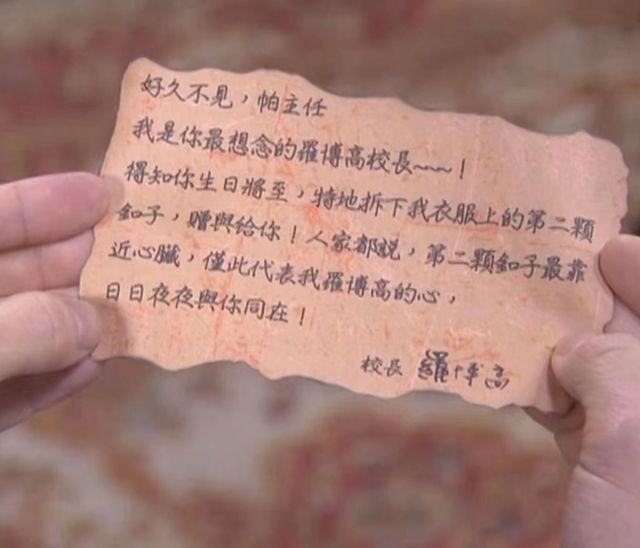 好久不見，帕主任
我是你最想念的羅博高校長~~~！
得知你生日將至，特地拆下我衣服上的第二顆
釦子，贈與給你！人家都說，第二顆釦子最靠
近心臟，僅此代表我羅博高的心，
日日夜夜與你同在！
校長 羅博高